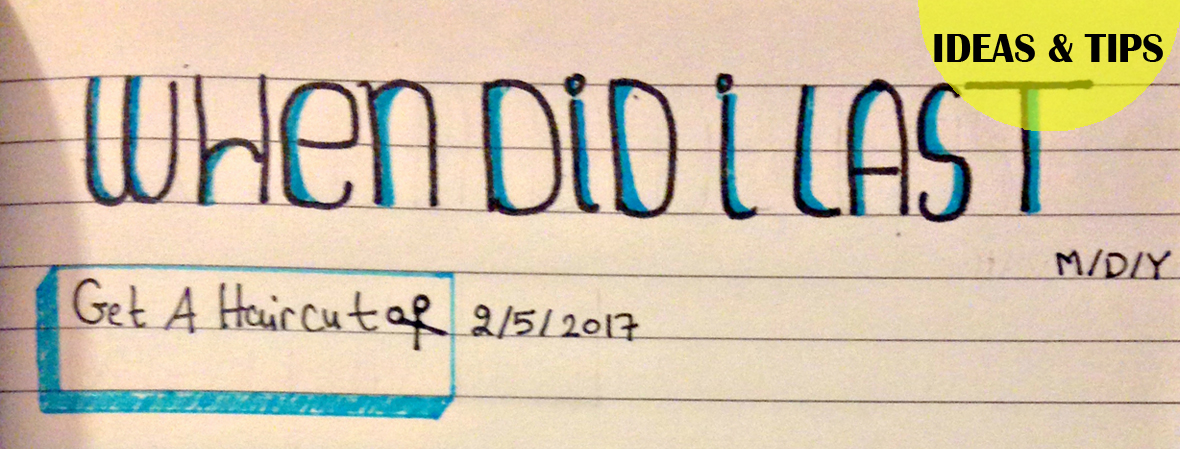 IDEAS & TIPS
WHen DiD i LAST
M/D/Y
Get A Haircut 2/5/2017